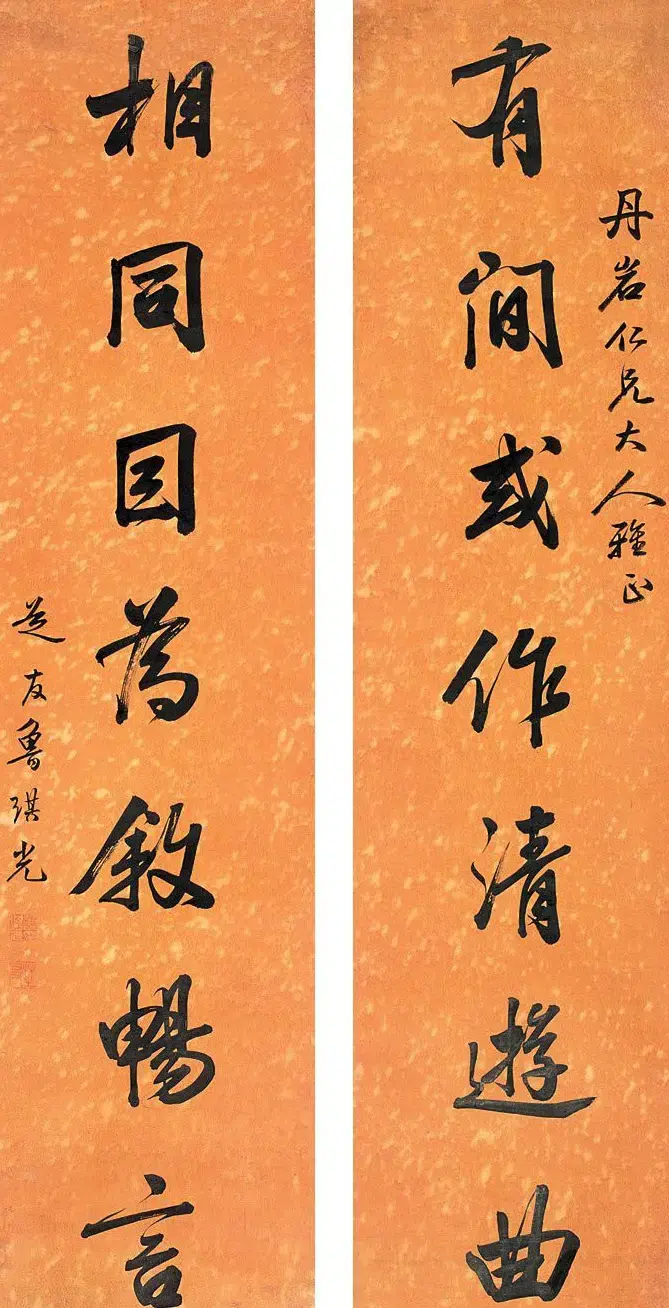 丹岩仁兄大人雅正
有间或作清遊曲
相同因为叙暢言
愚友鲁琪光